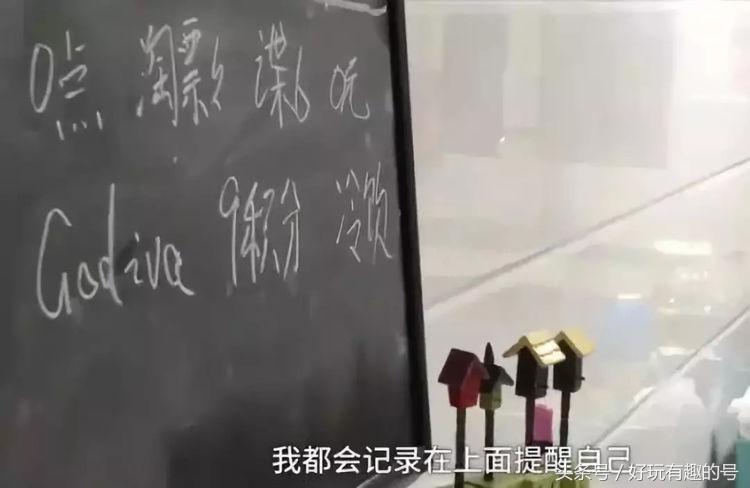 0点 淘票々 谍6 0元
Godiva 9积分 冷饮
我都会记录在上面提醒自己
头条号 / 好玩有趣的号